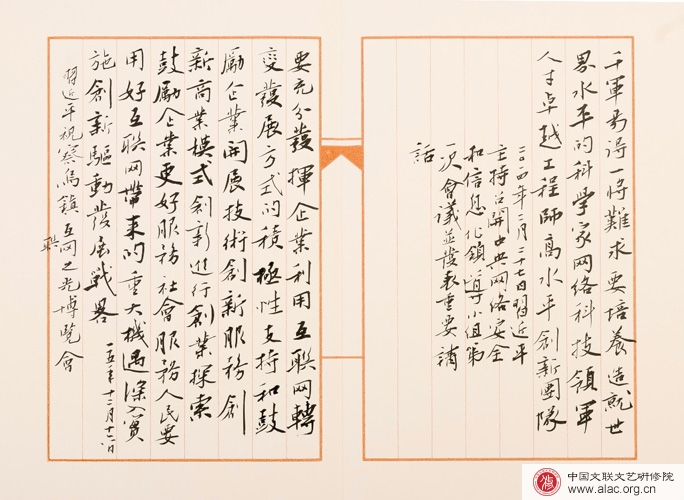 千軍易得一将難求要培養造就世
界水平的科學家网络科技領軍
人才卓越工程師高水平創新團隊
二〇一四年二月二十七日習近平
主持召開中央网络安全
和信息化領導小组第
一次會議並發表重要講
話
要充分發揮企業利用互联网轉
變發展方式的積極性支持和鼓
勵企業開展技術創新服務創
新商業模式創新進行創業探索
鼓勵企業更好服務社會服務人民要
用好互联网帶来的重大機遇深入實
施創新驅動發展戰略
一五年十二月十六日
習近平視察烏鎮互联网之光博覽會
中国文联文艺研修院
www.alac.org.cn